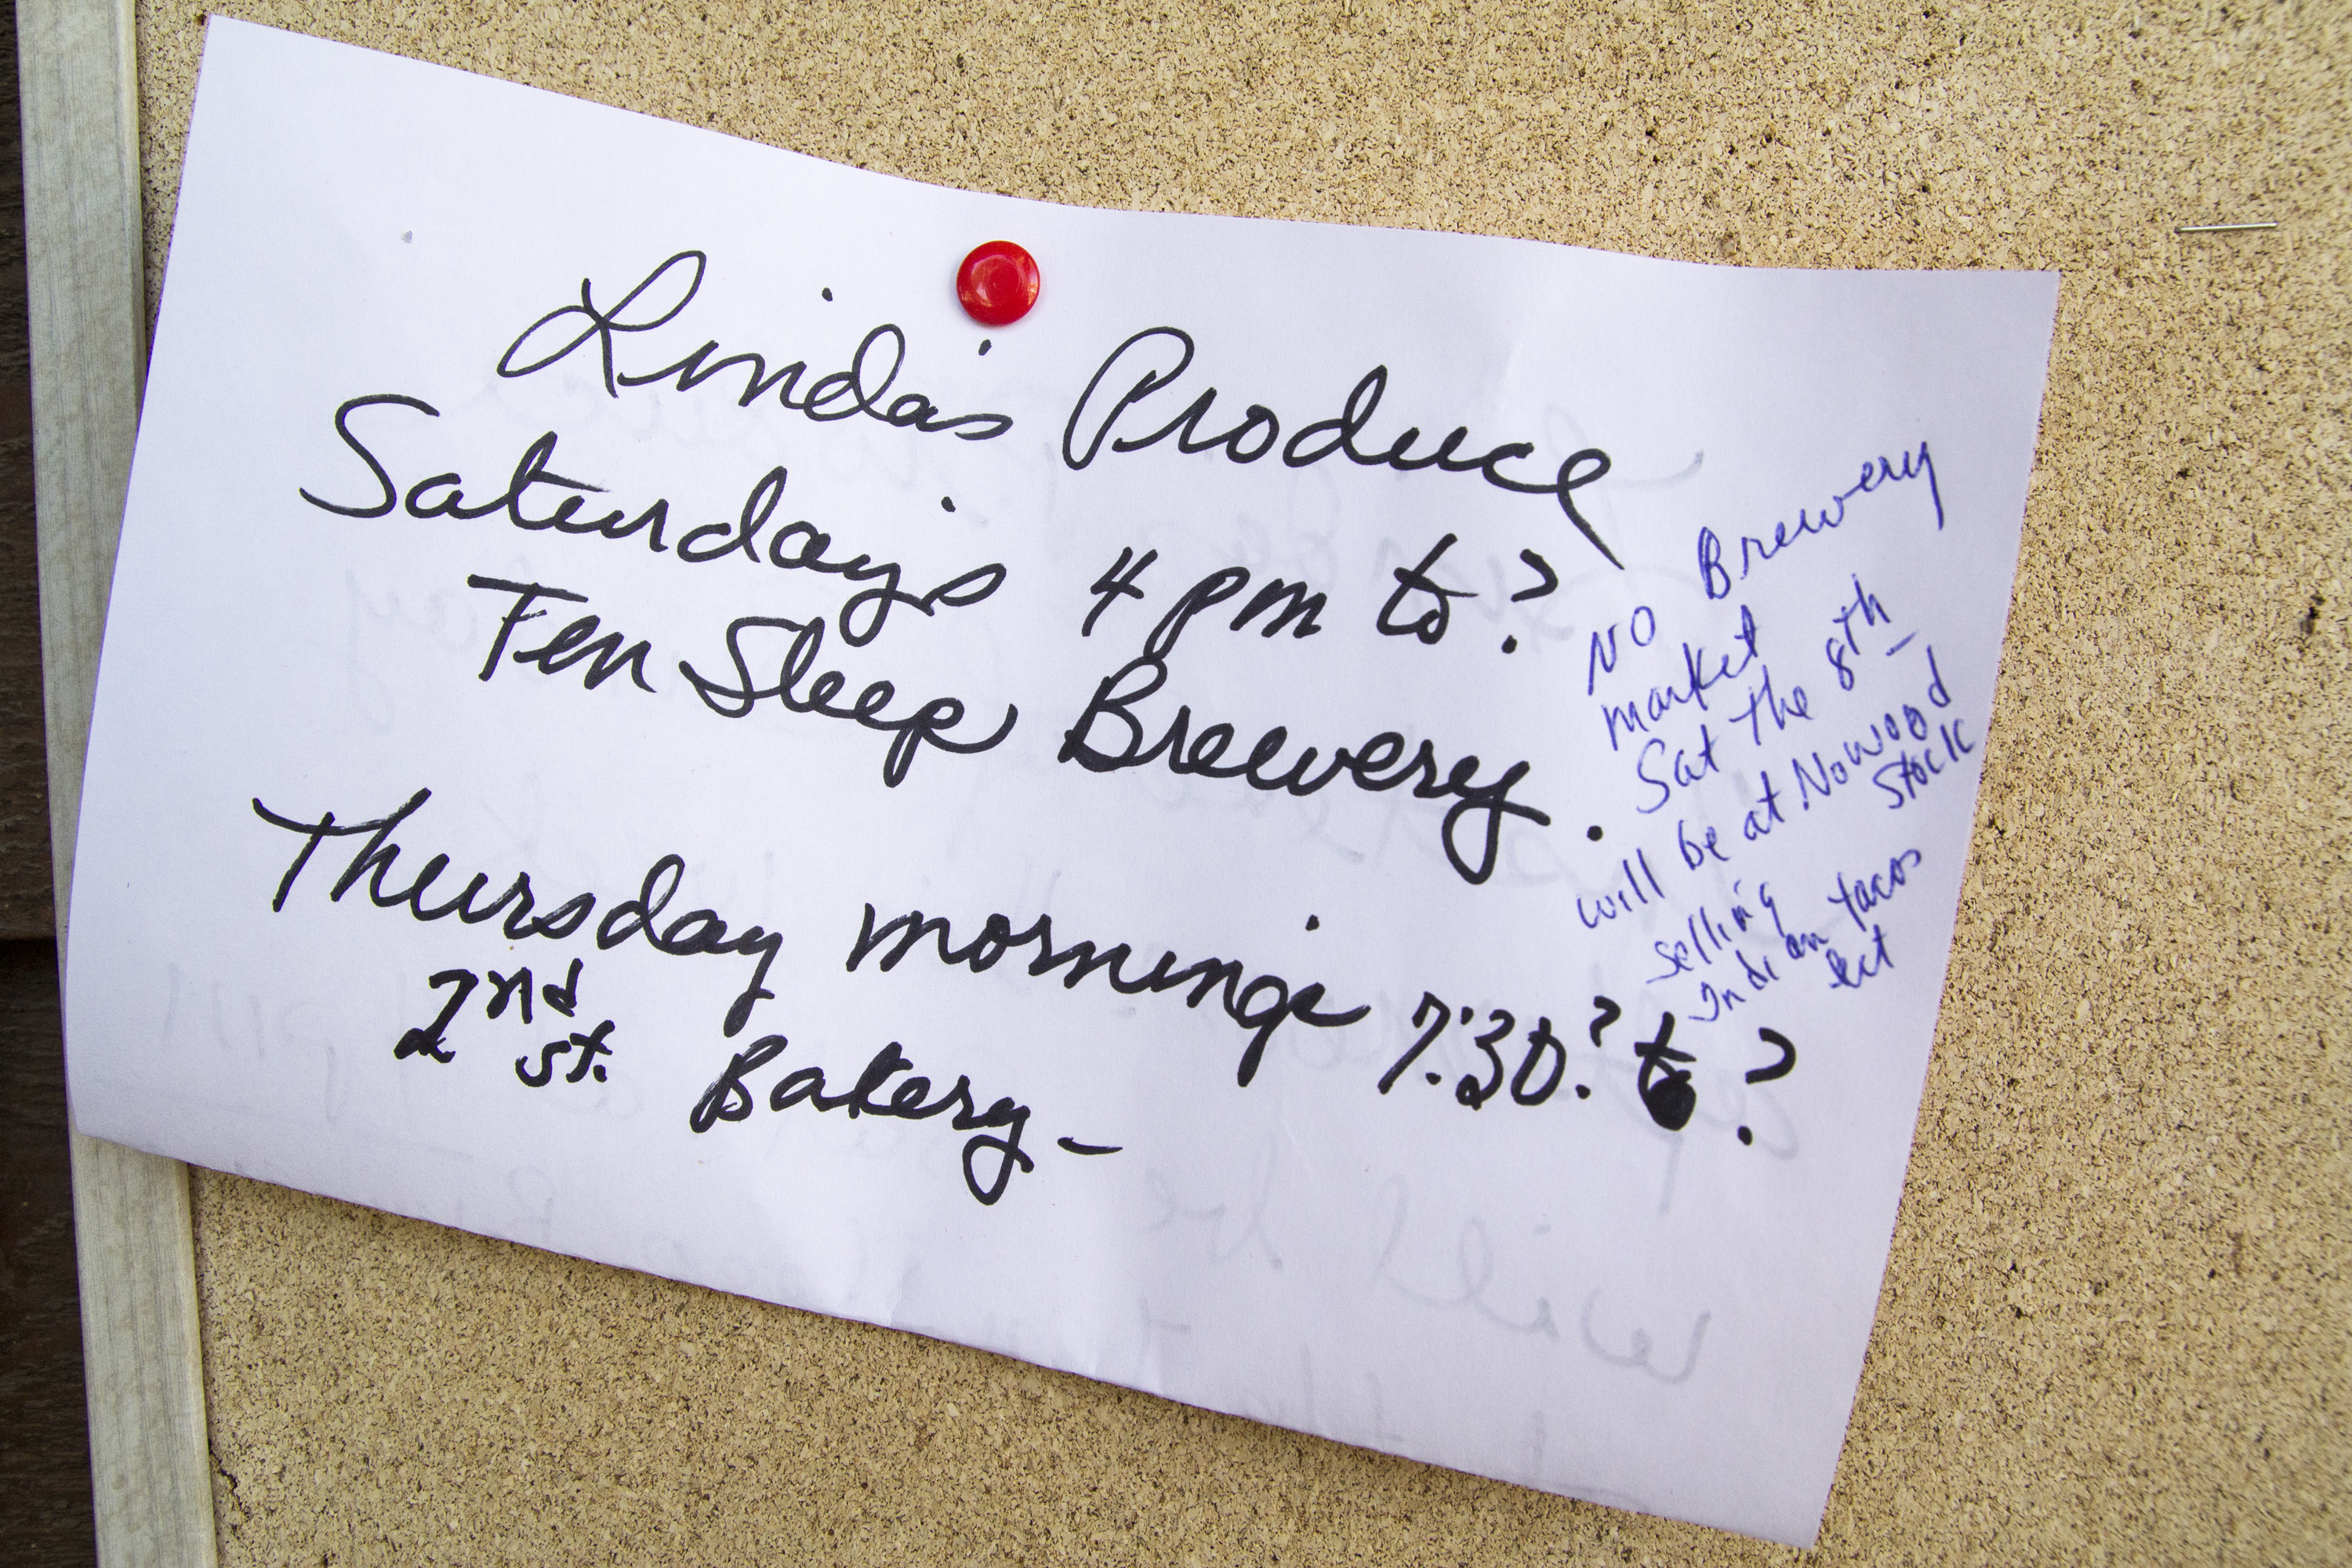 Linda's Produce
Saturday's 4 pm to ?
Ten Sleep Brewery.
Thursday mornings 7:30? to ?
2nd st. Bakery-
NO Brewery
market
Sat the 8th
will be at Nowood
Stock
selling
Indian tacos
ect